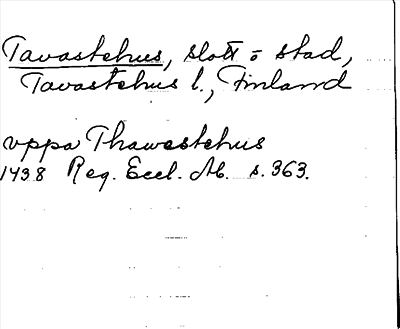 Tavastehus, slott o stad,
Tavastehus l., Finland
uppa Thawestehus
1438 Reg. Eccl. Ab. s. 363.